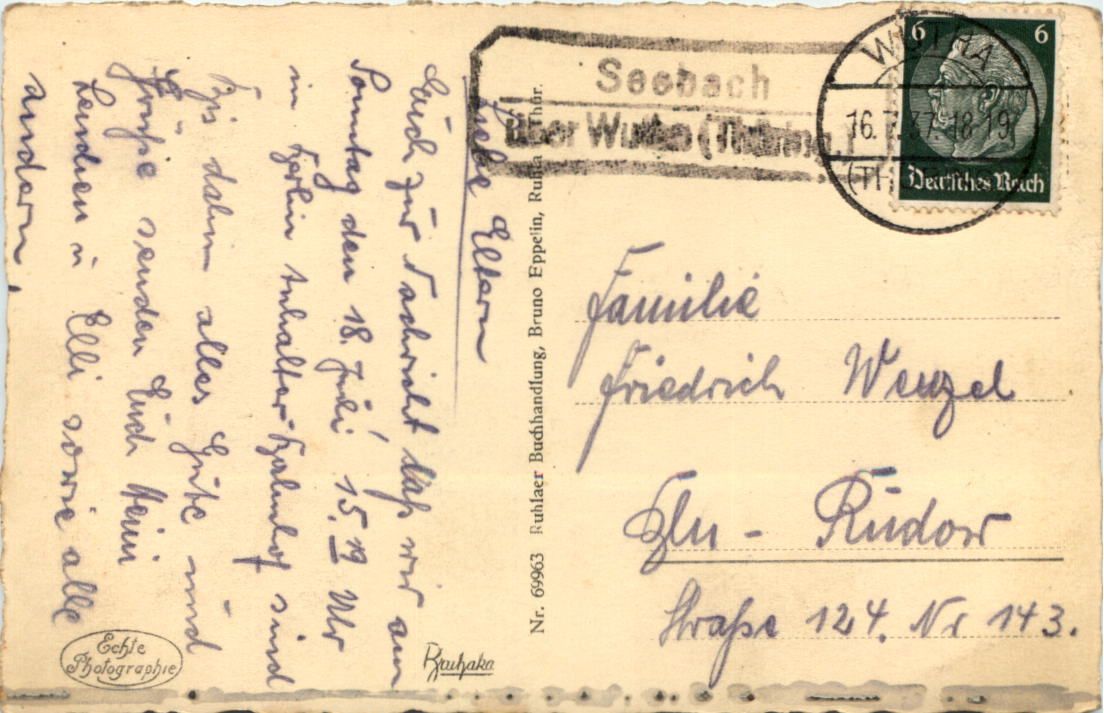 Liebe Eltern
Euch zur Nachricht daß wir am
Sonntag den 18. Juli 15.19 Uhr
in Berlin Anhalter-Bahnhof sind
Bis dahin alles Gute und
Grüße senden Euch Heini
Lenchen u Elli sowie alle
andern
Echte
Photographie
Bruhaka
Nr. 69963 Ruhlaer Buchhandlung, Bruno Eppelin, Ruhla Thür.
Seebach
über Wutha (Thüring.)
WUTHA
16.7.37.18-19
(THÜR
6 6
Deutsches Reich
Familie
Friedrich Wenzel
Bln - Rudow
Straße 124. Nr 143.